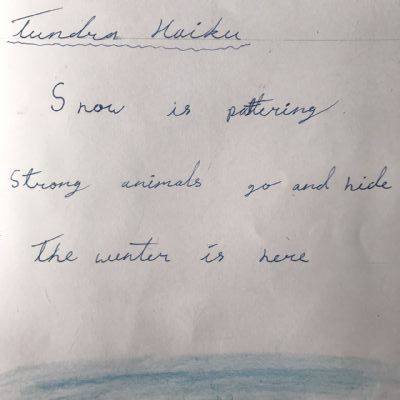 Tundra Haiku
Snow is pattering.
Strong animals go and hide
The wunter is here